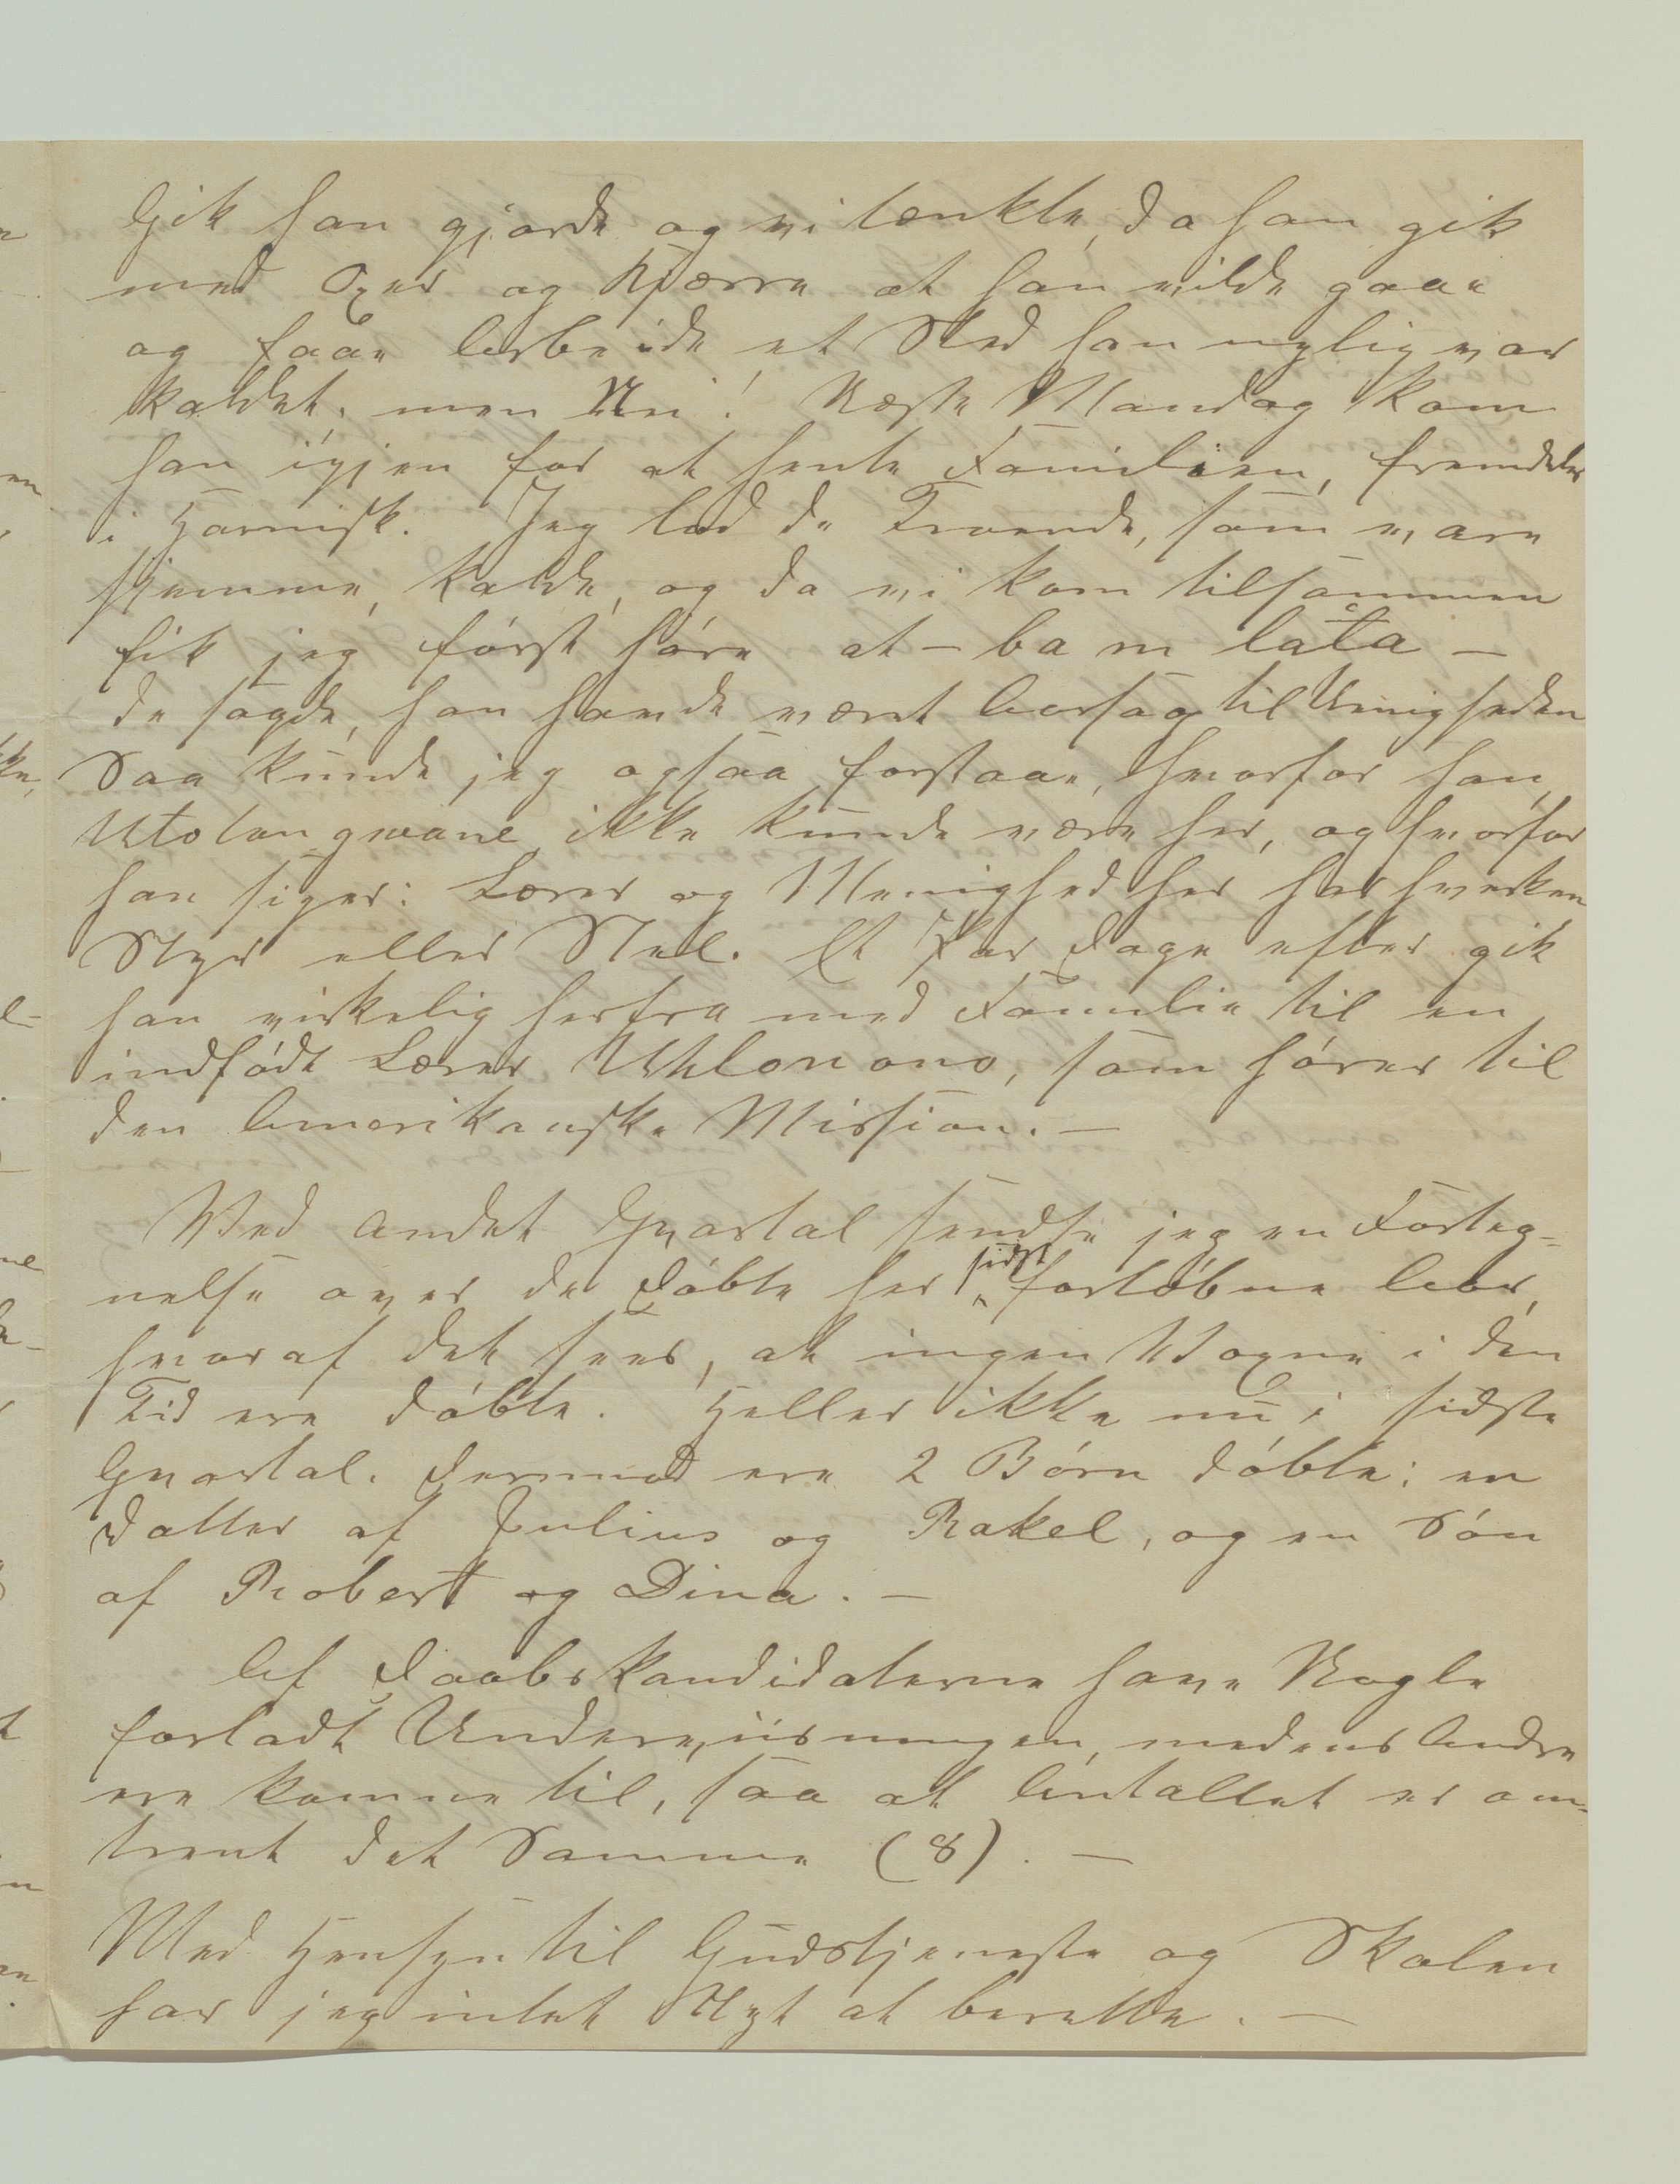 Gik han gjorde og vi tænkte, da han gik
med Oxer og Kjærre at han vilde gaae
og faae Arbeide et Sted han nylig var
kaldet, men Nei! Næste Mandag kom
han igjen for at hente Familien, fremdeles
i Harnisk. Jeg lod de Troende, som vare
hjemme, kalde, og da vi kom tilsammen
fik jeg først høre at – ba m lata –
de sagde, han havde været Aarsag til Uenigheden
Saa kunde jeg ogsaa forstaae, hvorfor han,
Utolongwane ikke kunde være her, og hvorfor
han siger: Lærer og Menighed her har hverken
Styr eller Stel. Et Par Dage efter gik
han virkelig herfra med Familie til en
indfødt Lærer Uhlonono, som hører til
den Amerikanske Mission. –
Ved andet Qvartal sendte jeg en Forteg-
nelse over de Døbte her sidst forløbne Aar,
hvoraf det sees, at ingen Voxne i den
Tid ere døbte. Heller ikke nu i sidste
Qvartal. Derimod ere 2 Børn døbte: en
Datter af Julius og Rakel, og en Søn
af Robert og Dina. –
Af Daabskandidaterne have Nogle
forladt Underviisningen, medens Andre
ere komne til, saa at Antallet er om-
trent det Samme (8). –
Med Hensyn til Gudstjeneste og Skolen
har jeg intet Nyt at berette. –